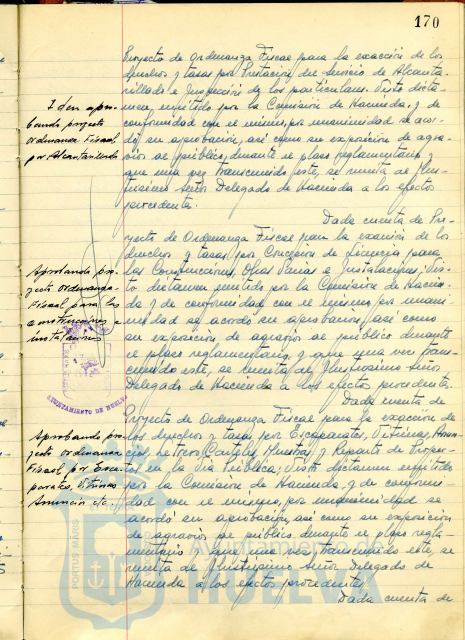 170
Proyecto de Ordenanza Fiscal para la exacción de los
derechos y tasas por Prestación del Servicio de Alcanta-
rillado e Inspección de los particulares. Visto dicta-
men, emitido por la Comisión de Hacienda, y de
conformidad con el mismo, por unanimidad se acor-
dó su aprobación, así como su exposición de agra-
vios al público, durante el plazo reglamentario y
que una vez transcurrido este, se remita al Ilus-
trísimo Señor Delegado de Hacienda a los efectos
procedentes.
Idem apro-
bando proyecto
ordenanza Fiscal
por Alcantarillado
Dada cuenta de Pro-
yecto de Ordenanza Fiscal para la exacción de los
derechos y tasas por Concesión de Licencia para
las Construcciones, Obras Varias e Instalaciones, Vis-
to dictamen emitido por la Comisión de Hacien-
da y de conformidad con el mismo por unani-
midad se acordó su aprobación, así como
su exposición de agravios al público durante
el plazo reglamentario, y que una vez trans-
currido este, se remita al Ilustrísimo Señor
Delegado de Hacienda a los efectos procedentes.
Aprobando pro-
yecto ordenanza
Fiscal para las
construcciones e
instalaciones
AYUNTAMIENTO DE HUELVA
Dada cuenta de
Proyecto de Ordenanza Fiscal para la exacción de
los derechos y tasas por Escaparates, Vitrinas, Anun-
cios, Letreros, Carteles, Muestras y Reparto de Propa-
en la Vía Pública; Visto dictamen emitido
por la Comisión de Hacienda, y de conformi-
dad con el mismo, por unanimidad se
acordó su aprobación, así como su exposición
de agravios al público durante el plazo regla-
mentario y que una vez transcurrido este, se
remita al Ilustrísimo Señor Delegado de
Hacienda a los efectos procedentes.
Aprobando pro-
yecto ordenanza
Fiscal por Esca-
parates, Vitrinas
Anuncios etc.
Dada cuenta de
PORTUS MARIS
Ayuntamiento de
HUELVA